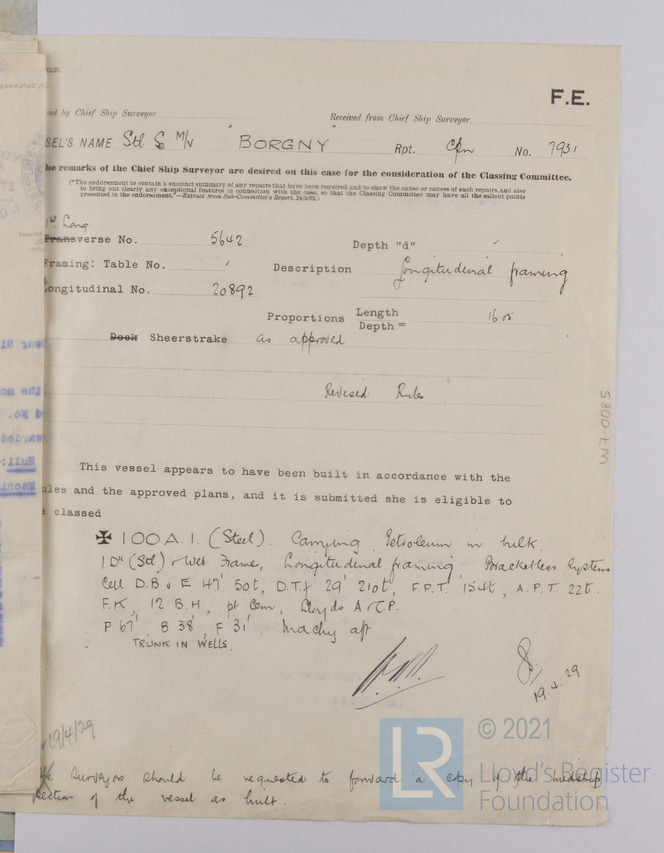 F.E.
ed by Chief Ship Surveyor Received from Chief Ship Surveyor
SEL'S NAME Stl Sc M/V "BORGNY" Rpt. Cpn No. 7931
he remarks of the Chief Ship Surveyor are desired on this case for the consideration of the Classing Committee.
("The endorsement to contain a succinct summary of any repairs that have been required and to show the cause or causes of such repairs, and also
to bring out clearly any exceptional features in connection with the case, so that the Classing Committee may have all the salient points
presented in the endorsement."—Extract from Sub-Committee's Report, 24/5/92.)
Long
Transverse No. 5642 Depth "d"
Framing: Table No. Description Longitudinal framing
ongitudinal No. 20892
Proportions Length
Depth = 16.05
Deck Sheerstrake as approved
Revised Rules
This vessel appears to have been built in accordance with the
les and the approved plans, and it is submitted she is eligible to
classed
✠ 100 A.1. (Steel). Carrying Petroleum in bulk.
1 Dk (Stl) & Web Frames, Longitudinal framing Bracketless System
Cell D.B. E 47' 50t, D.T.f 29' 210t, F.P.T. 154t, A.P.T. 22t.
F.K, 12 B.H, pt Cem, Lloyds A & C.P.
P 67' B 38' F 31' Machy aft
TRUNK IN WELLS.
19.4.29
19/4/29
The Surveyors should be requested to forward a copy of the midship
section of the vessel as built.
WN7-0085
LR
© 2021
Lloyd's Register
Foundation